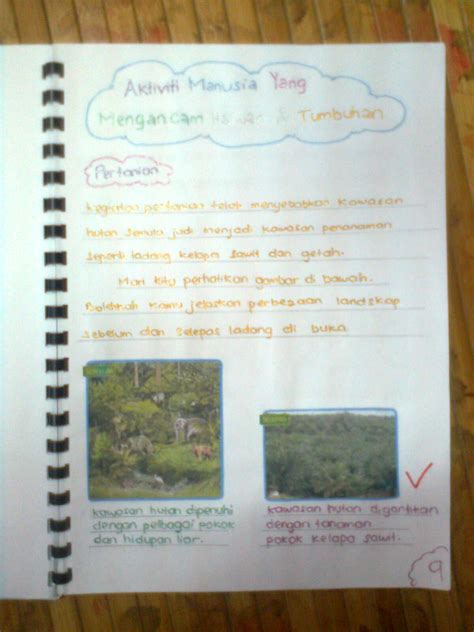 Aktiviti Manusia Yang
Mengancam Haiwan & Tumbuhan
Pertanian
kegiatan pertanian telah menyebabkan kawasan
hutan semula jadi menjadi kawasan penanaman
seperti ladang kelapa sawit dan getah.
Mari kita perhatikan gambar di bawah.
Bolehkah kamu jelaskan perbezaan landskap
sebelum dan selepas ladang di buka
kawasan hutan dipenuhi
dengan pelbagai pokok
dan hidupan liar.
kawasan hutan digantikan
dengan tanaman
pokok kelapa sawit.
9